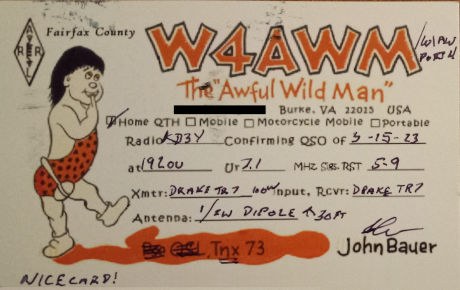 Fairfax County
ARRL
W4AWM
The "Awful Wild Man"
Burke, VA 22015 USA
Home QTH Mobile Motorcycle Mobile Portable
Radio KD3Y Confirming QSO of 3-15-23
at 1920U Ur 7.1 MHZ Sig. RST 5-9
Xmtr: DRAKE TR7 100W input, Rcvr: DRAKE TR7
Antenna: 1/2W DIPOLE ↑ 30FT
QSL, Tnx 73
John Bauer
NICE CARD!